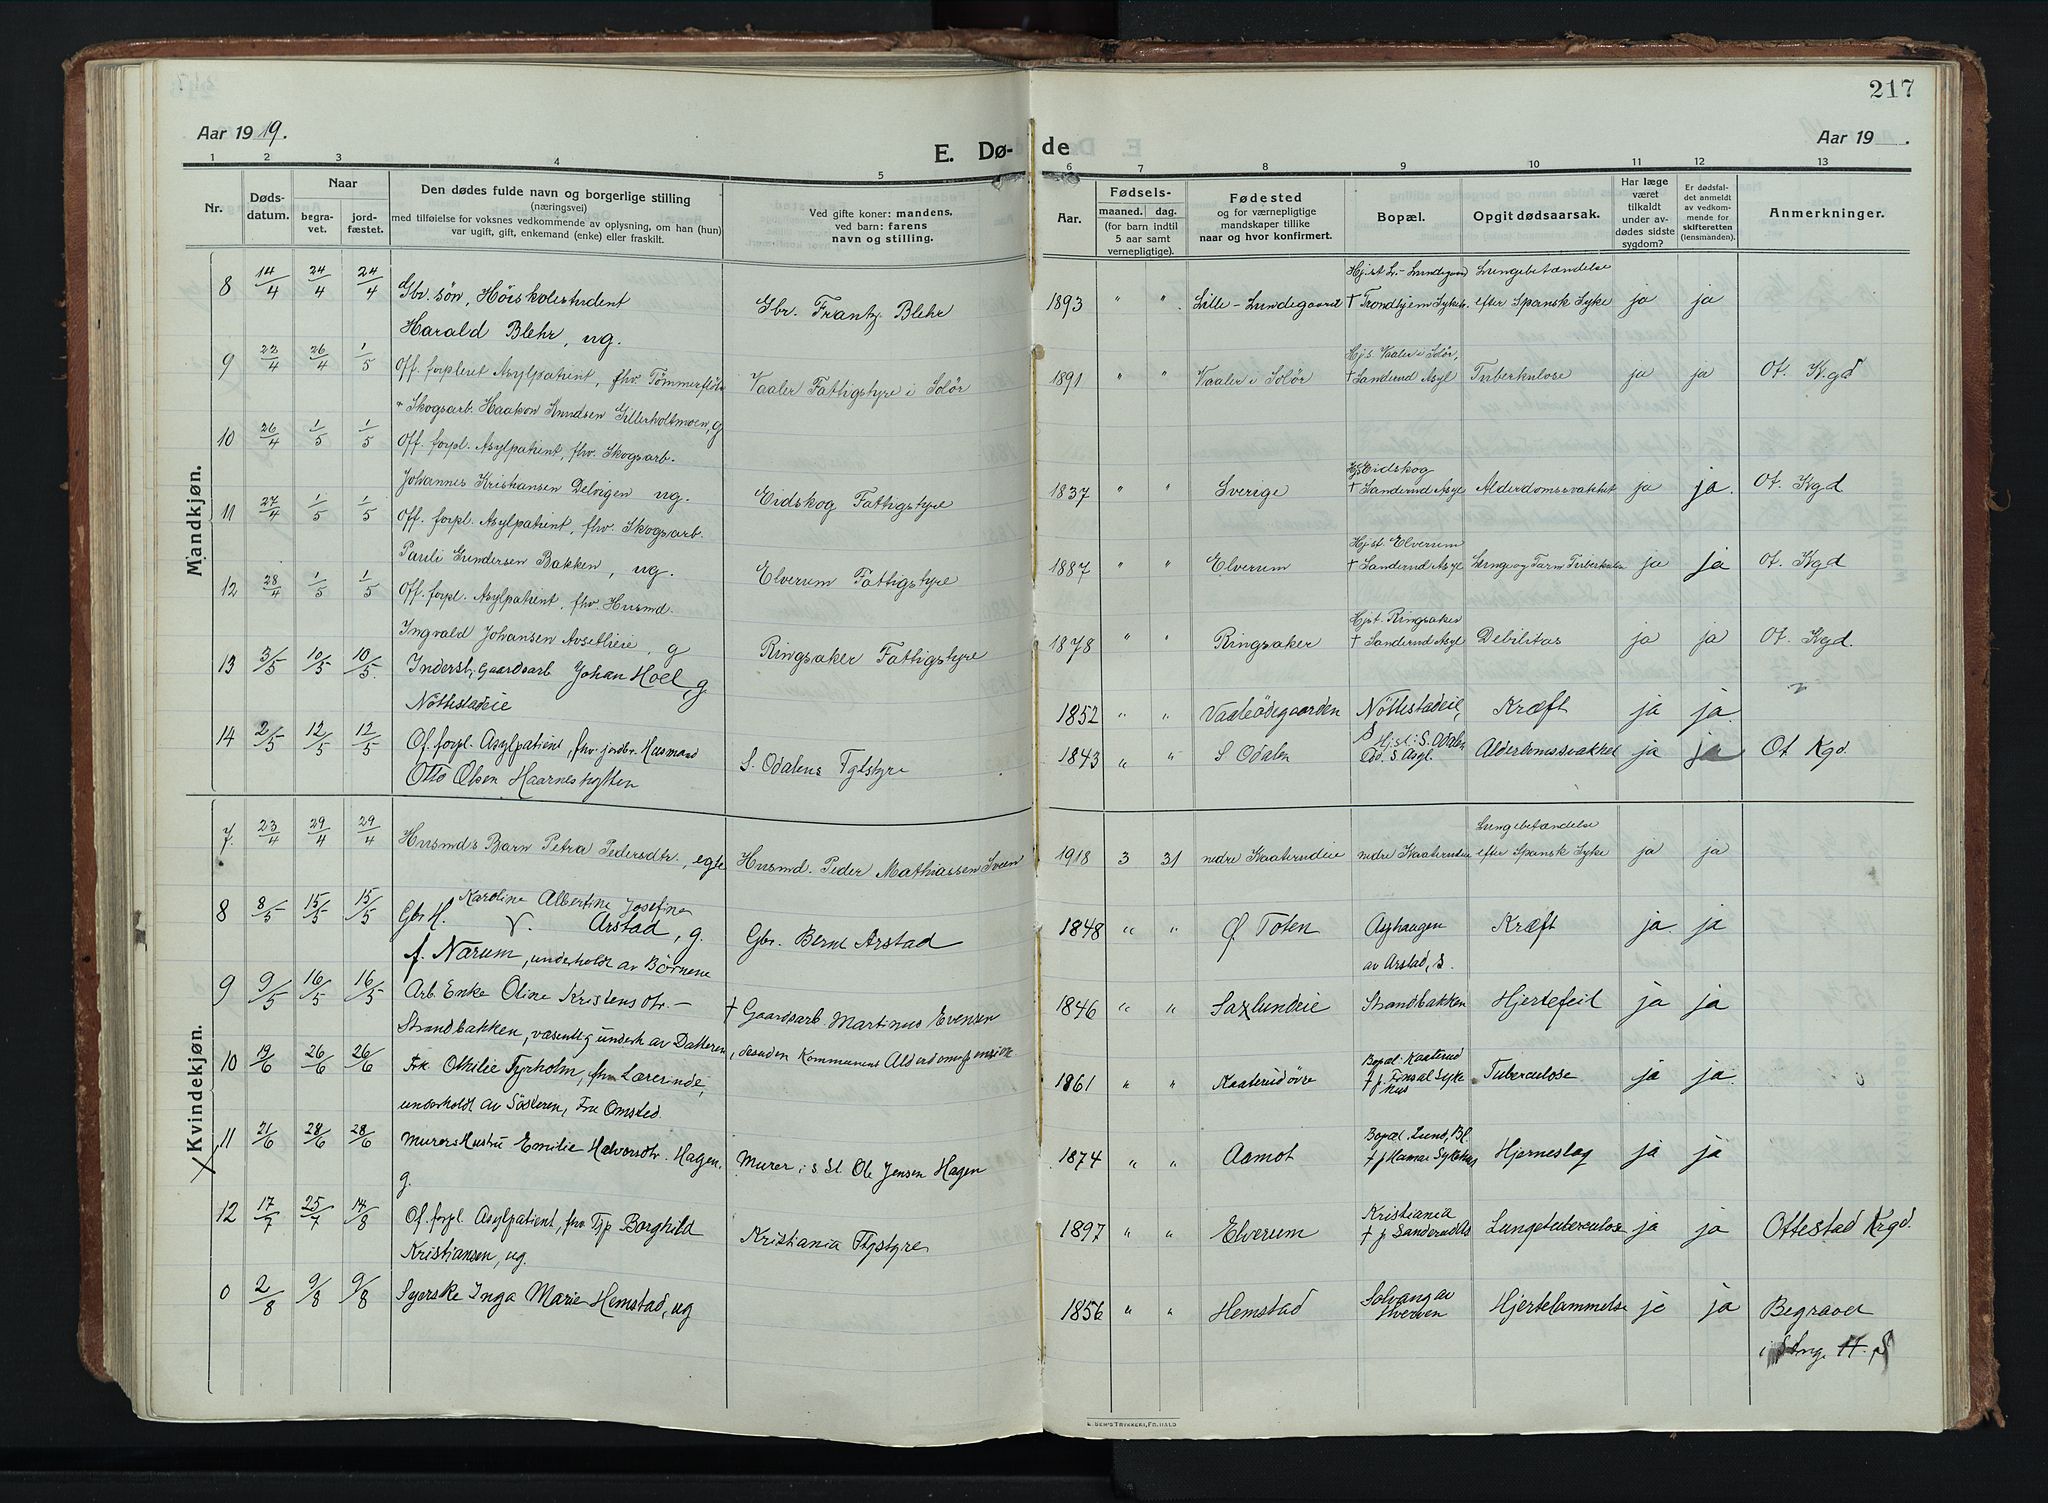 217
Aar 1919.
E. Dø-
de
Aar 19 .
1 2 3 4 5 6 7 8 9 10 11 12 13
Nr.
Døds-
datum.
Naar
begra-
vet.
jord-
fæstet.
Den dødes fulde navn og borgerlige stilling
(næringsvei)
med tilføielse for voksnes vedkommende av oplysning, om han (hun)
var ugift, gift, enkemand (enke) eller fraskilt.
Ved gifte koner: mandens,
ved barn: farens
navn og stilling.
Aar.
Fødsels-
maaned. dag.
(for barn indtil
5 aar samt
vernepligtige).
Fødested
og for værnepligtige
mandskaper tillike
naar og hvor konfirmert.
Bopæl.
Opgit dødsaarsak.
Har læge
været
tilkaldt
under av-
dødes sidste
sygdom?
Er dødsfal-
det anmeldt
av vedkom-
mende for
skifteretten
(lensmanden).
Anmerkninger.
Mandkjøn.
8 14/4 24/4 24/4 Gbr. søn, Høiskolestudent
Harald Blehr, ug.
Gbr. Frantz Blehr 1893 " " Lille-Lundegaard
Hjst L.-Lundegaard
† Trondhjem Sykeh.
Lungebetændelse
efter Spansk Syke ja ja
9 22/4 26/4 1/5 Off. forpleiet Asylpatient, fhv. Tømmerfløter
" Skogsarb. Haakon Knudsen Gillerholtmoen, g
Vaaler Fattigstyre i Solør 1891 " " Vaaler i Solør
Hjs. Vaaler i Solør,
† Sanderud Asyl Tuberkulose ja ja Ot. Kgd
10 26/4 1/5 1/5 Off. forpl. Asylpatient, fhv. Skogsarb.
Johannes Kristiansen Delvigen ug.
Eidskog Fattigstyre 1837 " " Sverige
Hjs Eidskog
† Sanderud Asyl Alderdomssvakhet ja ja. Ot. Kgd
11 27/4 1/5 1/5 Off. forpl. Asylpatient, fhv. Skogsarb.
Pauli Gundersen Bakken, ug.
Elverum Fattigstyre 1887 " " Elverum
Hjst. Elverum
† Sanderud Asyl Lunge og Tarm Tuberkulose ja ja Ot. Kgd
12 28/4 1/5 1/5 Off. forpl. Asylpatient, fhv. Husmd.
Ingvald Johansen Avsetlieie, g
Ringsaker Fattigstyre 1878 " " Ringsaker
Hjst. Ringsaker
† Sanderud Asyl Debilitas ja ja Ot. Kgd.
13 3/5 10/5 10/5. Inderst, Gaardsarb Johan Hoel, g
Nøttestadeie
1852 " " Vaaleødegaarden Nøttestadeie, Kræft ja ja.
14 2/5 12/5 12/5 Of. forpl. Asylpatient, fhv. jordbr. Husmand
Otto Olsen Haarneshytten
S. Odalens Fgtstyre 1843 " " S Odalen
Hjst: S. Odalen
S Asyl. Alderdomssvakhet ja ja Ot Kgd.
Kvindekjøn.
7. 23/4 29/4 29/4 Husmds Barn Petra Pedersdtr., egte
Husmd. Peder Mathiassen Sveen 1918 3 31 nedre Kaaterudeie nedre Kaaterudeie
Lungebetændelse
efter Spansk Syke ja ja
8 8/5 15/5 15/5 Gbr H. Karoline Albertine Josefine
V. Arstad, g.
f. Narum, underholdt av Børnene
Gbr. Bernt Arstad 1848 " " Ø. Toten
av Arstad, S. Kræft ja. ja
9 9/5 16/5 16/5 Arb. Enke Oline Kristensdtr. -
Strandbakken, væsentlig underh av Datteren
† Gaardsarb. Martinus Evensen
, desuden Kommunens Alderdomspension
1846 " " Saxlundeie Strandbakken Hjertefeil ja ja
10 19/6 26/6 26/6 Frk. Othilie Fyrholm, fhv Lærerinde,
underholdt av Søsteren, Fru Omsted.
1861 " " Kaaterud øvre
Bopæl: Kaaterud
Tuberculose ja ja.
11 21/6 28/6 28/6 Murers Hustru Emilie Halvorsdtr. Hagen,
g.
Murer, i s St Ole Jensen Hagen 1874 " " Aamot
Bopæl. Lund, Bl.
† p Hamar Sykehus Hjerneslag ja ja
12 17/7 25/7 14/8 Of. forpl. Asylpatient, fhv Typ Borghild
Kristiansen, ug.
Kristiania Ftgstyre 1897 " " Elverum
Kristiania
† p Sanderud As Lungetuberculose ja ja Ottestad Krgd.
0 2/8 9/8 9/8 Syerske Inga Marie Hemstad, ug
1856 " " Hemstad
Solvang av
Hjertelammelse ja ja Begravet
i Stng.
E. SEM'S TRYKKERI, FR.HALD